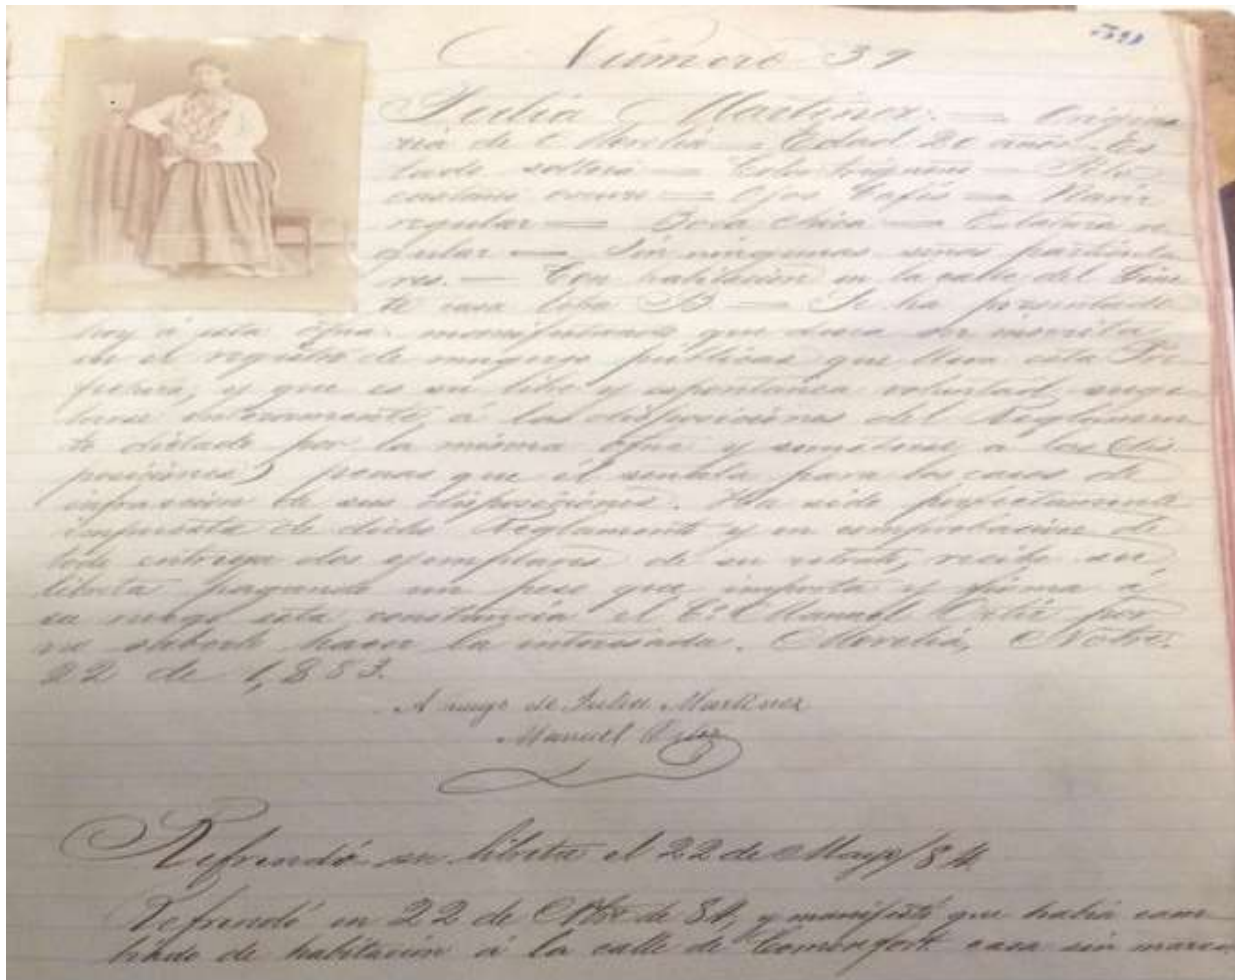 39
Número 39
Julia Martinez. — Origina
ria de Morelia — Edad 20 años. Es
tado soltera — Color trigueño — Pelo
castaño oscuro — Ojos Cafés — Nariz
regular — Boca chica — Estatura re
gular — Sin ningunas señas particula
res. — Con habitacion en la calle del
te casa letra B — Se ha presentado
hoy á esta ofna. manifestando que desea ser inscrita
en el registro de mugeres públicas que lleva esta Pre
fectura, y que es su libre y espontánea voluntad suge
tarse enteramente, á las disposiciones del Reglamen
to dictado por la misma ofna y someterse á las dis
posiciones y penas que él señala para los casos de
infraccion de sus disposiciones. Ha sido perfectamente
impuesta de dicho Reglamento y en comprobacion de
todo entrega dos ejemplares de su retrato, recibe su
libreta pagando un peso que importa y firma á
su ruego esta constancia el C. Manuel Ortiz por
no saberlo hacer la interesada. Morelia, Nobre.
22 de 1,883.
A ruego de Julia Martinez
Manuel Ortiz
Refrendó su libreta el 22 de Mayo/84
Refrendó en 22 de de 84, y manifestó que habia cam
biado de habitacion á la calle de Comonfort casa sin marca